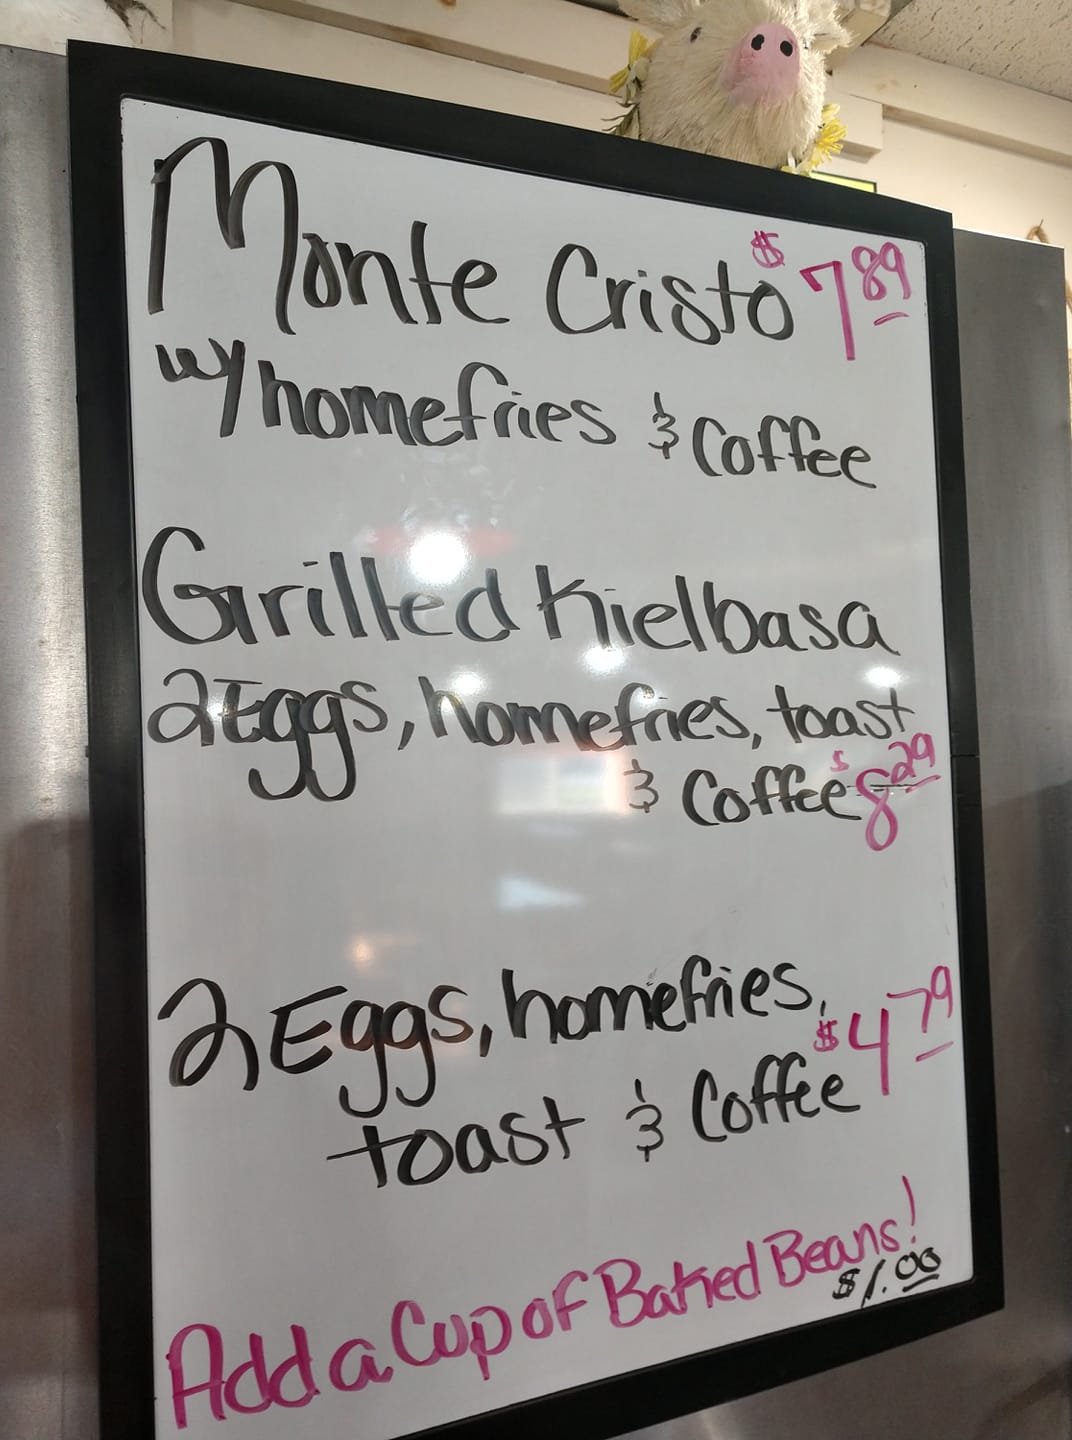 Monte Cristo $7.89
w/homefries & Coffee
Grilled Kielbasa
2 Eggs, homefries, toast
& Coffee $8.29
2 Eggs, homefries,
toast & Coffee $4.79
Add a Cup of Baked Beans!
$1.00